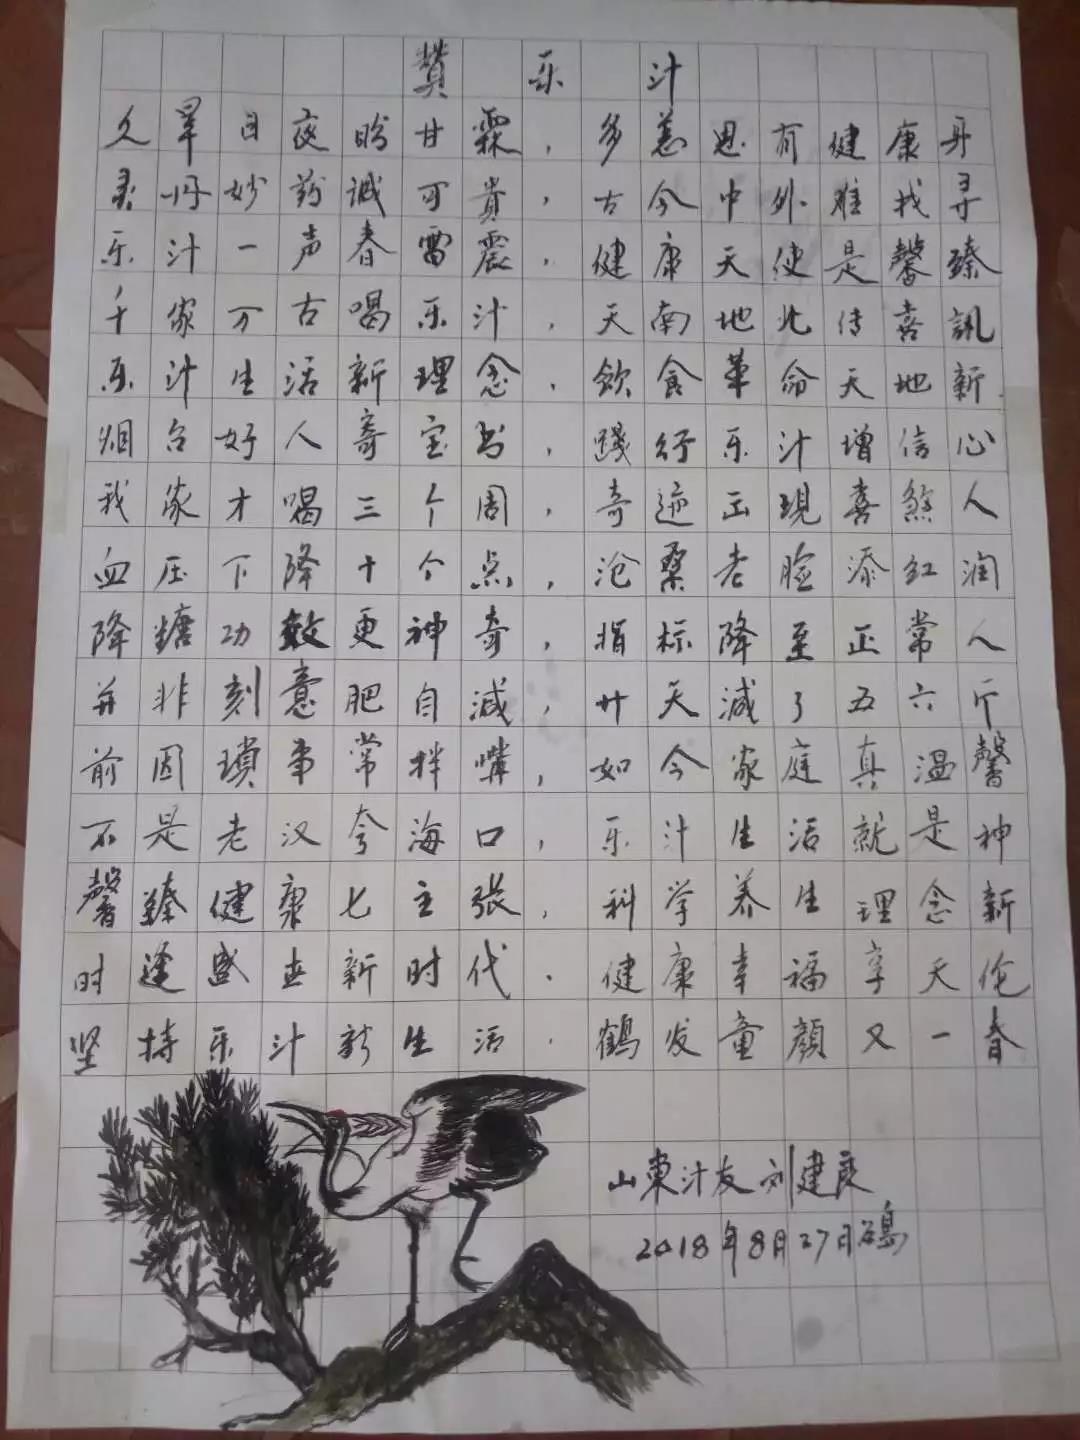 贊乐汁
久旱日夜盼甘霖，多恙思有健康身
灵丹妙药诚可貴，古今中外难找寻
乐汁一声春雷震，健康天使是馨臻
千家万古喝乐汁，天南地北传喜訊
乐汁生活新理念，飲食革命天地新
烟台好人寄宝书，踐行乐汁增信心
我家才喝三个周，奇迹出現喜煞人
血压下降十个点，沧桑老脸添红润
降糖功效更神奇，指标降至正常人
并非刻意肥自减，廿天减了五六斤
前因瑣事常拌嘴，如今家庭真温馨
不是老汉夸海口，乐汁生活就是神
馨臻健康七主张，科学养生理念新
时逢盛世新时代，健康幸福享天伦
坚持乐汁新生活，鹤发童顔又一春
山東汁友刘建良
2018年8月27日